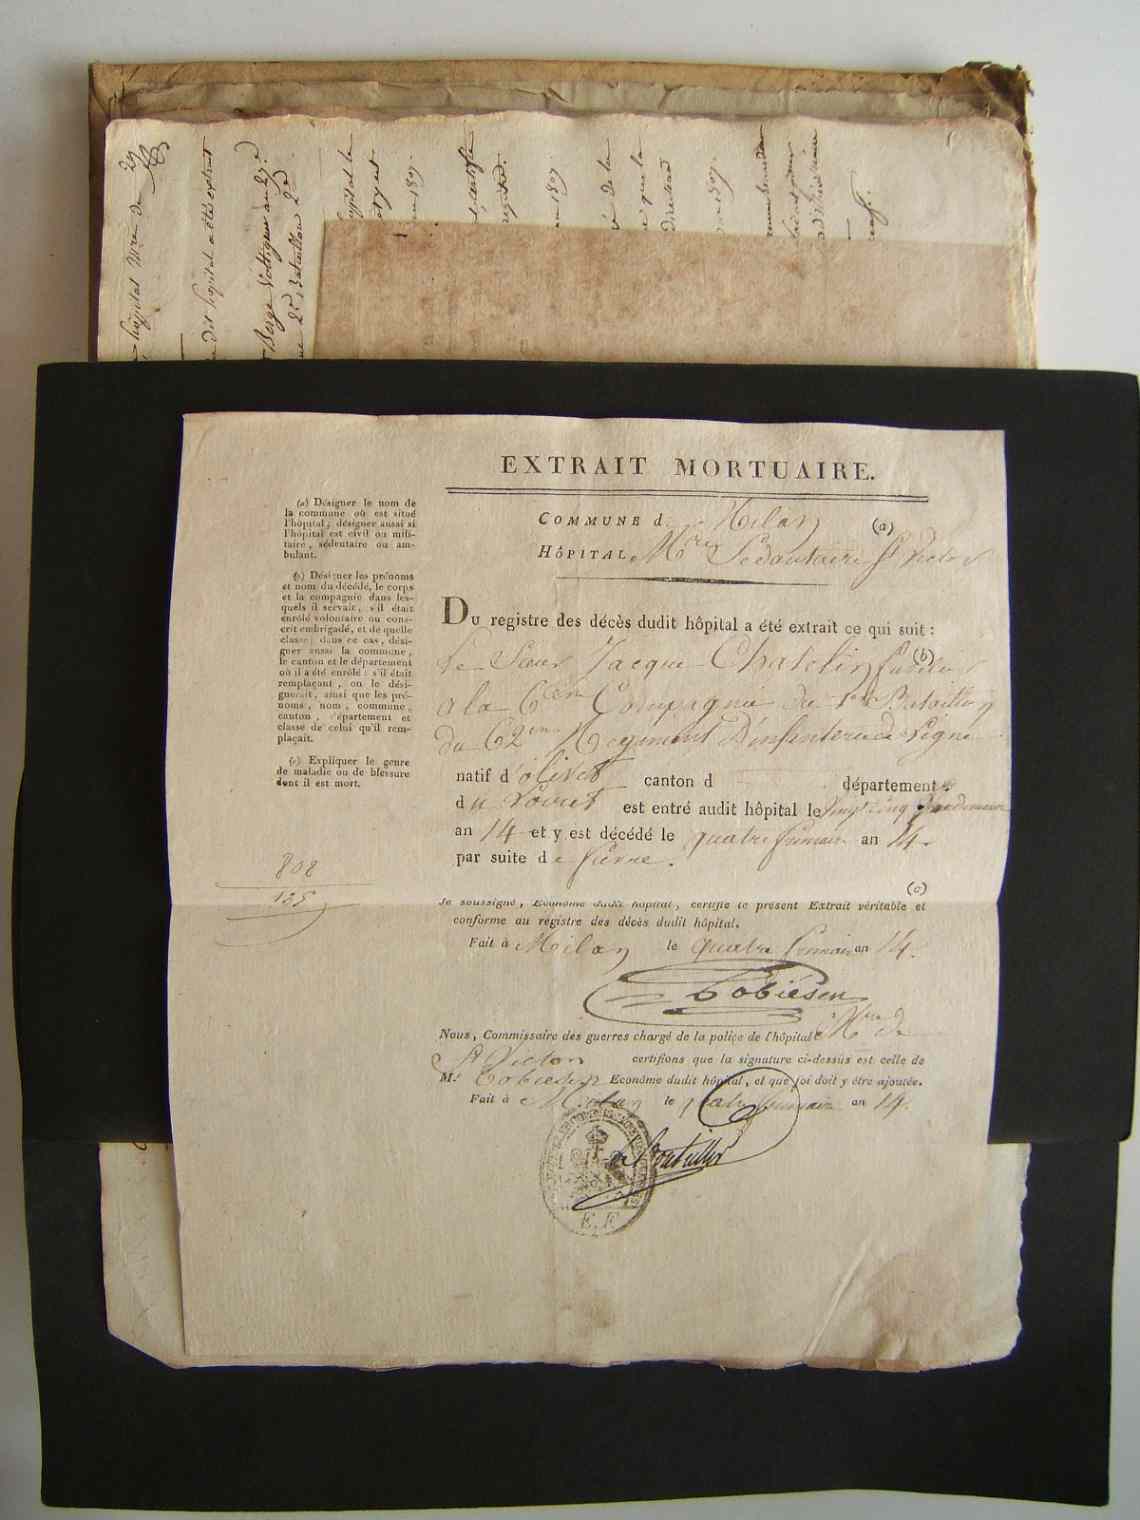 EXTRAIT MORTUAIRE.
COMMUNE d Milan (a)
HÔPITAL Mre Sédentaire St Victor
(a) Désigner le nom de
la commune où est situé
l'hôpital; désigner aussi si
l'hôpital est civil ou mili-
taire, sédentaire ou am-
bulant.
(b) Désigner les prénoms
et nom du décédé, le corps
et la compagnie dans les-
quels il servait, s'il était
enrôlé volontaire ou cons-
crit embrigadé, et de quelle
classe; dans ce cas, dési-
gner aussi la commune,
le canton et le département
où il a été enrôlé: s'il était
remplaçant, on le dési-
gnerait, ainsi que les pré-
noms, nom, commune,
canton, département et
classe de celui qu'il rem-
plaçait.
(c) Expliquer le genre
de maladie ou de blessure
dont il est mort.
808
135
Du registre des décès dudit hôpital a été extrait ce qui suit:
Le Sieur Jacque Chatelin fusilier (b)
à la 6em Compagnie du 1er Bataillon
du 62em Regiment D'infanterie de Ligne
natif d'olivet canton d département
du Loiret est entré audit hôpital le vingt cinq Vendemiaire
an 14 et y est décédé le quatre frimaire an 14.
par suite de fievre.
(c)
Je soussigné, Econôme dudit hôpital, certifie le présent Extrait véritable et
conforme au registre des décès dudit hôpital.
Fait à Milan le quatre frimaire an 14.
Tobiesen
Nous, Commissaire des guerres chargé de la police de l'hôpital Mre de
St Victor certifions que la signature ci-dessus est celle de
M.r Tobiesen Econôme dudit hôpital, et que foi doit y être ajoutée.
Fait à Milan le quatre frimaire an 14.
E. F.
hôpital Mre de
dit hopital a été extrait
Berge Voltigeur au 27.e
2d Bataillon
hôpital la
1807
certifie
registre.
1807
de la
que la
1807.